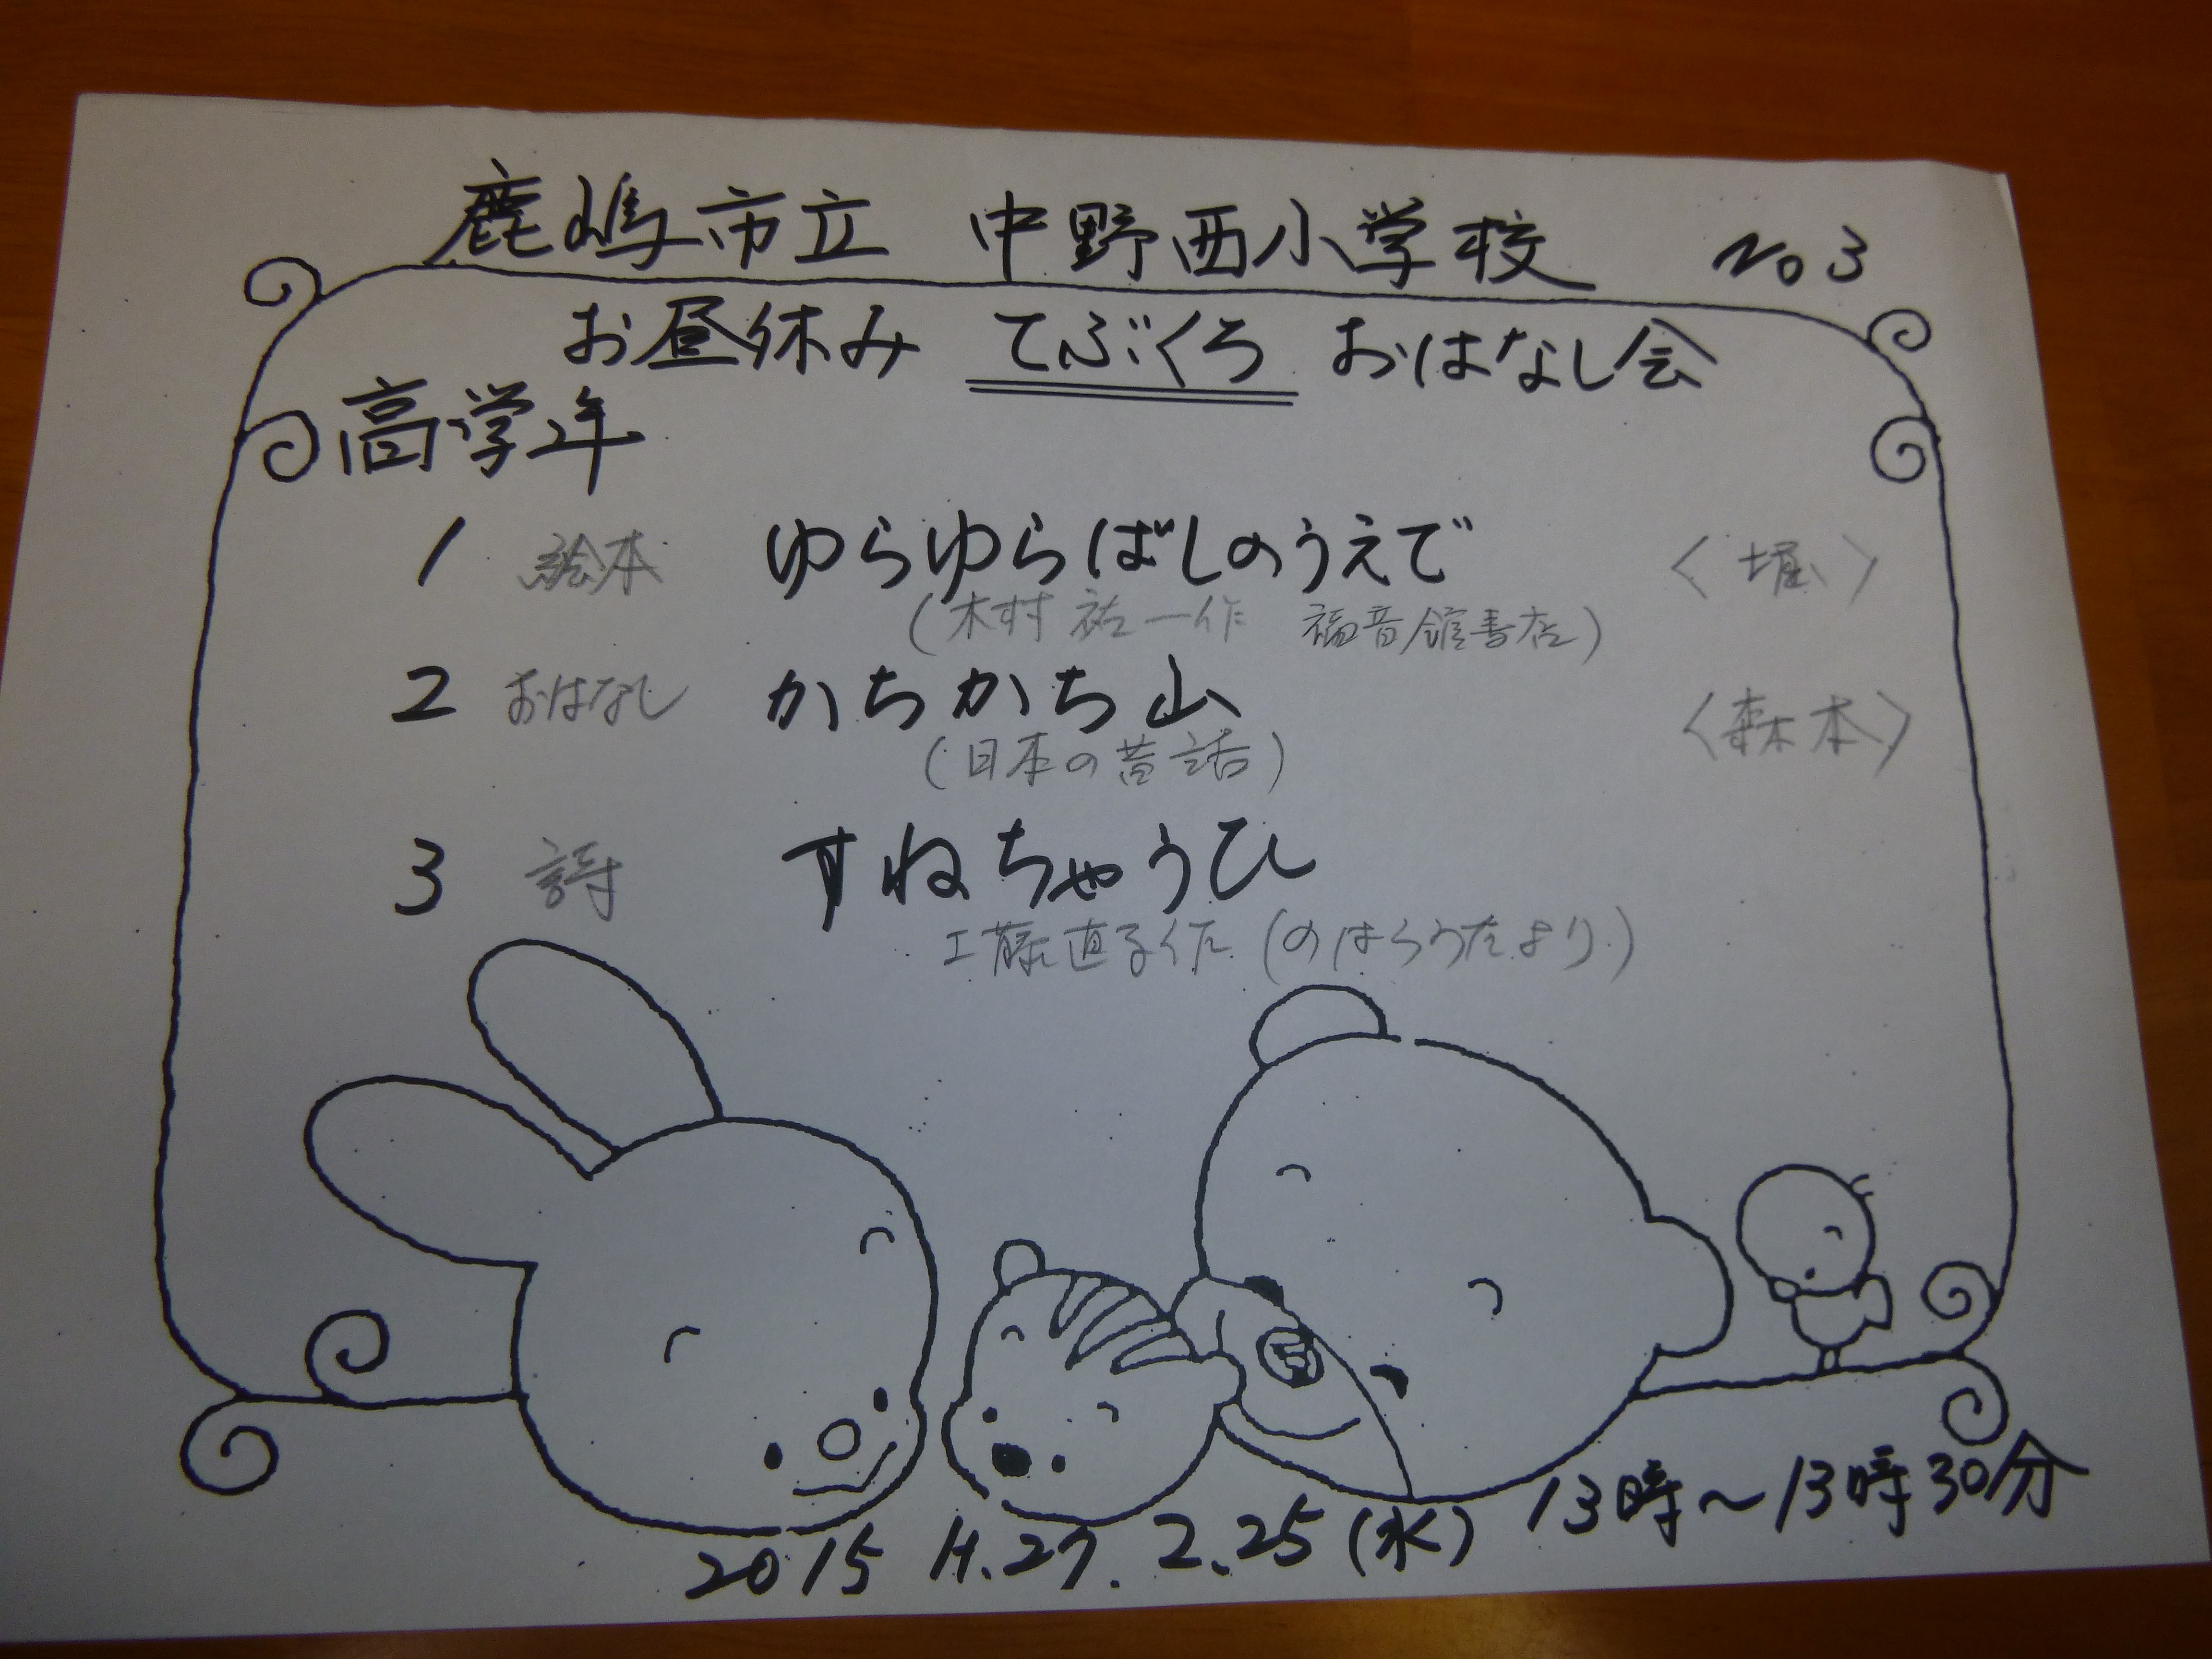 鹿嶋市立 中野西小学校 No 3
お昼休み てぶくろ おはなし会
高学年
1 絵本 ゆらゆらばしのうえで 〈堀〉
(木村祐一作 福音館書店)
2 おはなし かちかち山 〈森本〉
(日本の昔話)
3 詩 すねちゃうひ
工藤直子作 (のはらうたより)
2015 H.27. 2.25(水) 13時~13時30分